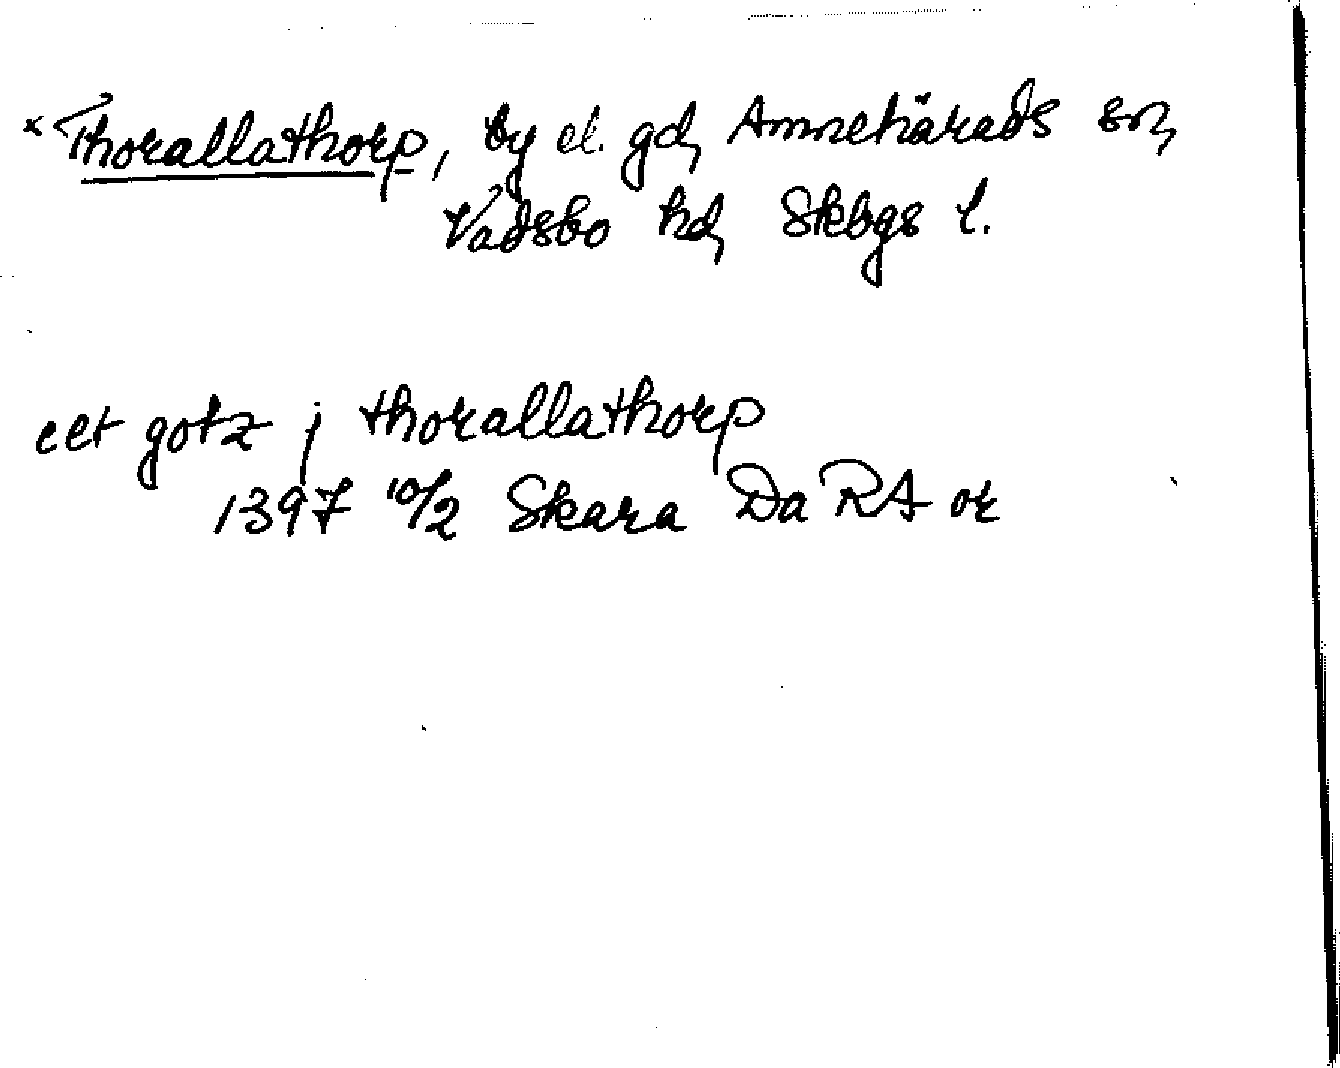 × Thorallathorp, by el. gd, Amnehärads sn,
Vadsbo hd, Skbgs l.
eet gotz j thorallathorp
1397 10/2 Skara Da RA or